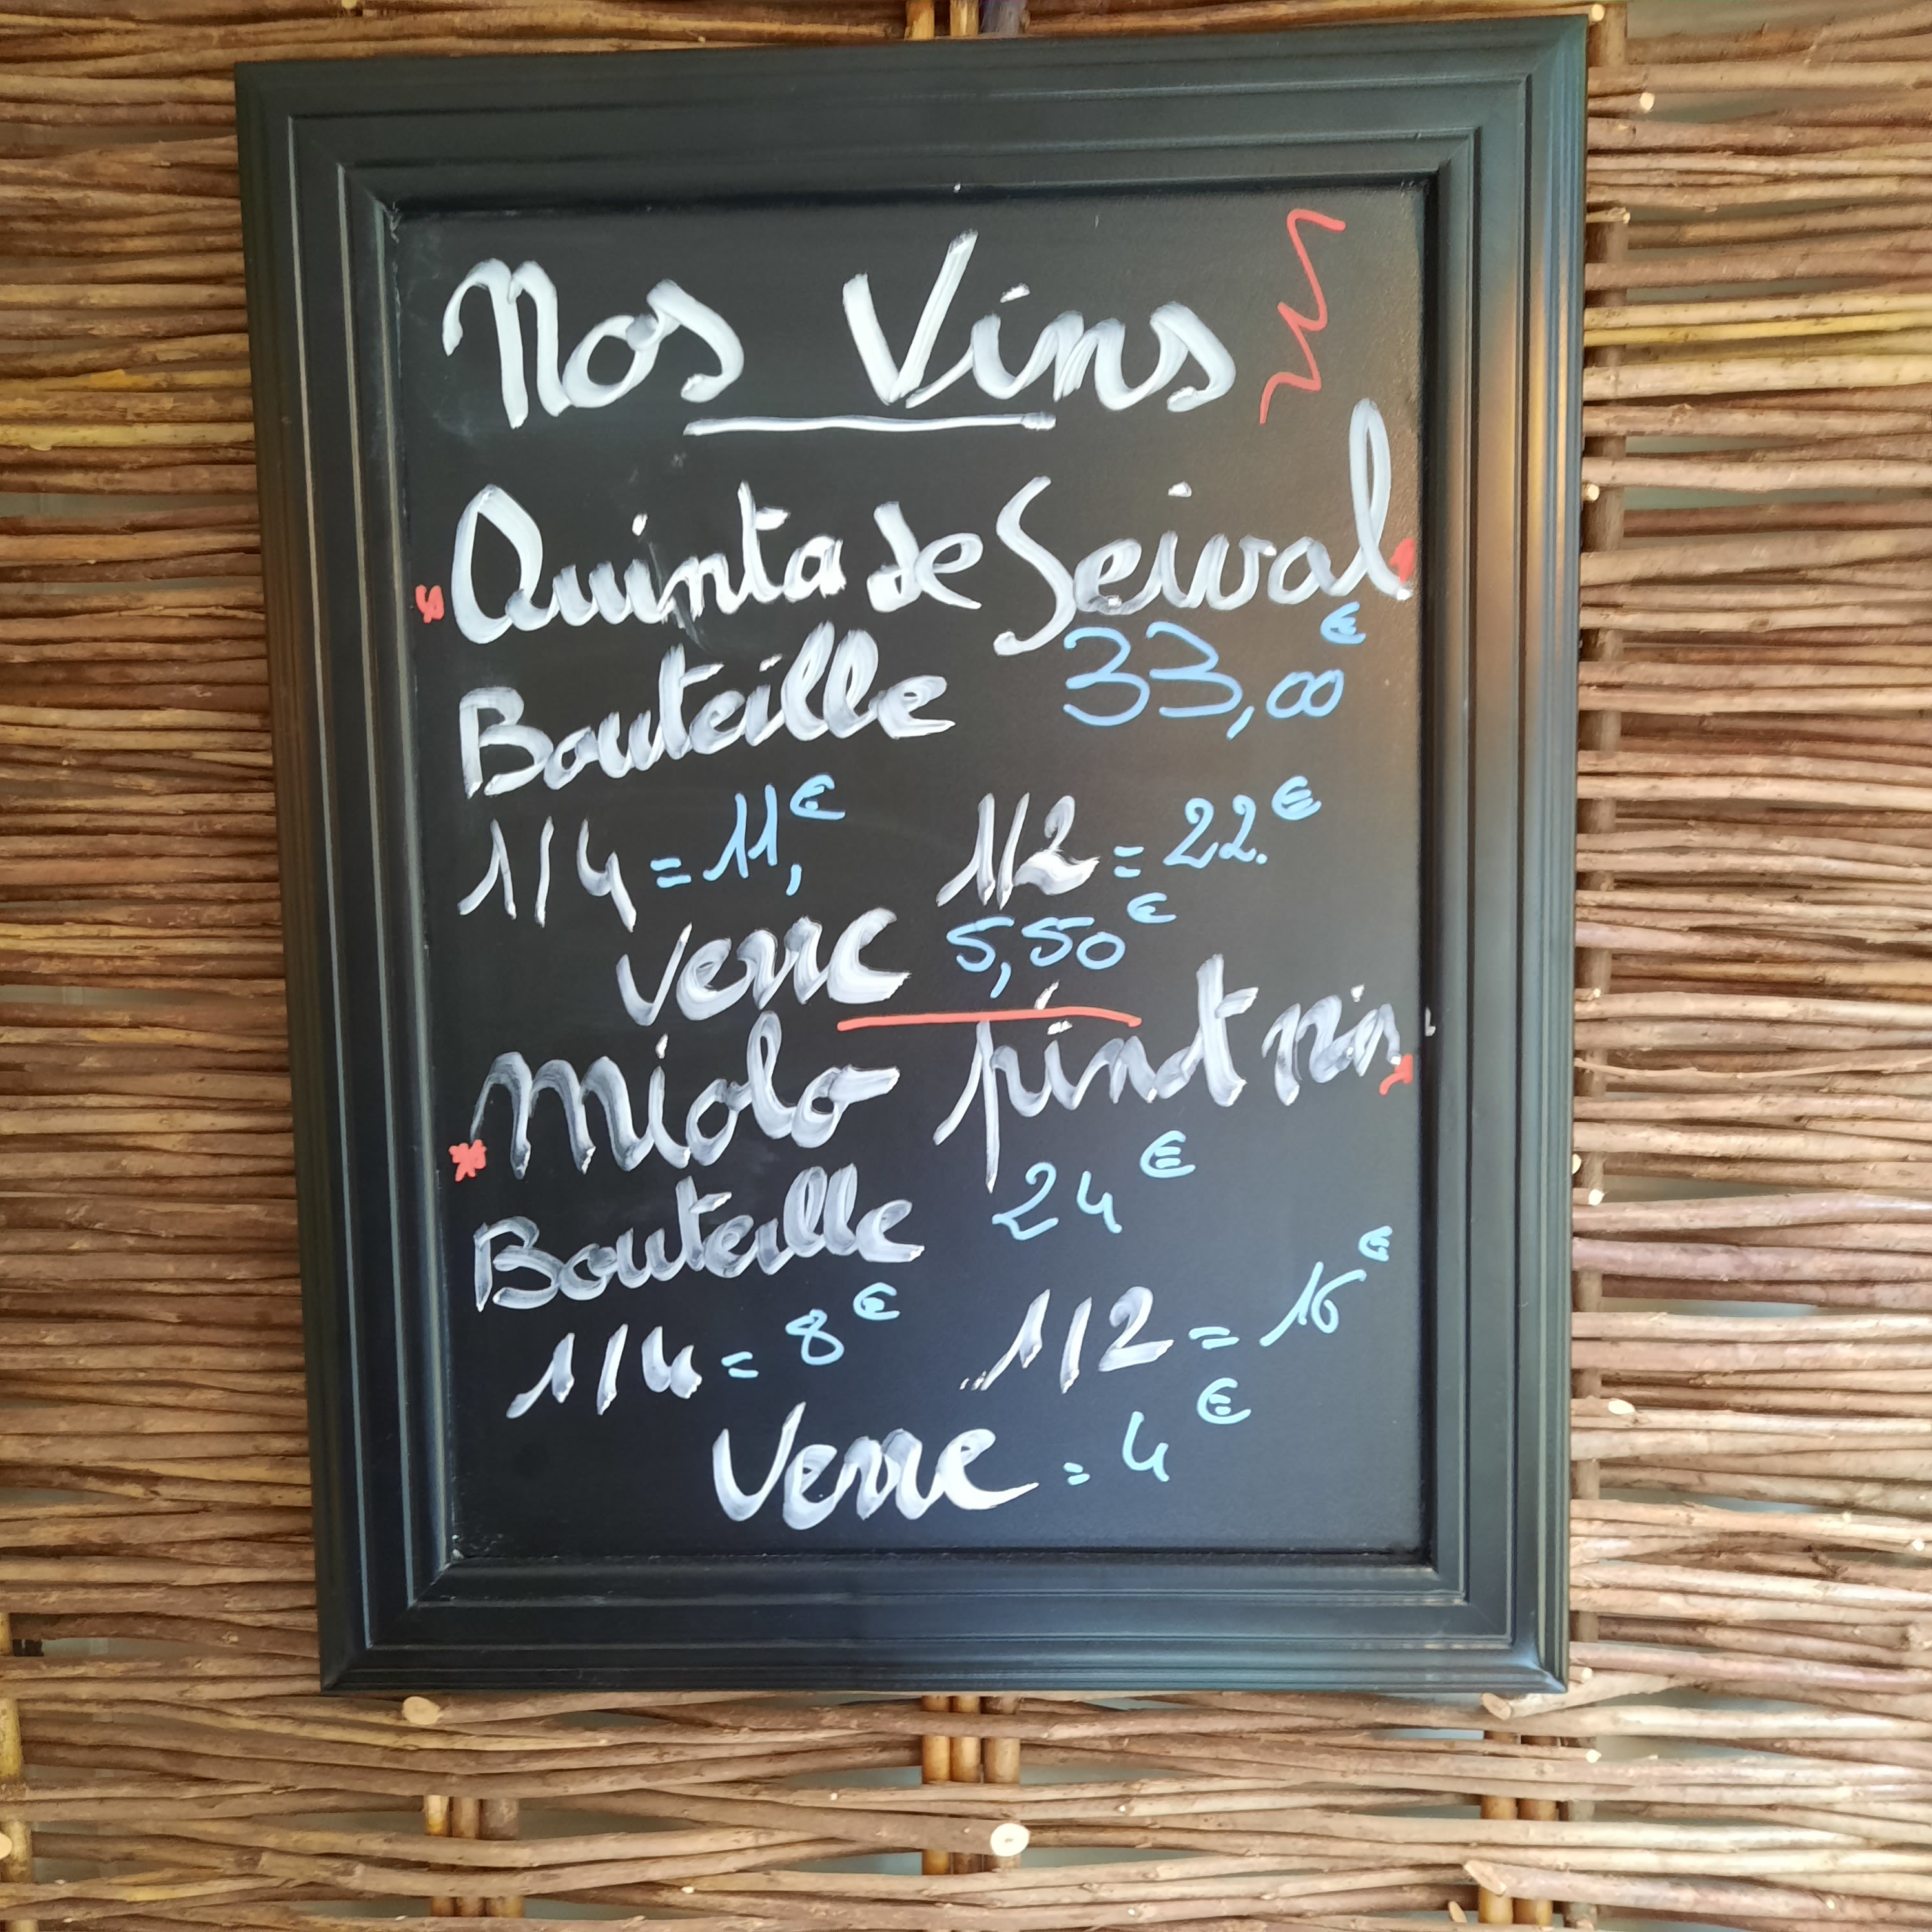 Nos Vins
Quinta de Seival
Bouteille 33,00€
1/4 = 11,€ 1/2 = 22.€
Verre 5,50€
Miolo pinot
Bouteille 24€
1/4 = 8€ 1/2 = 16€
Verre = 4€